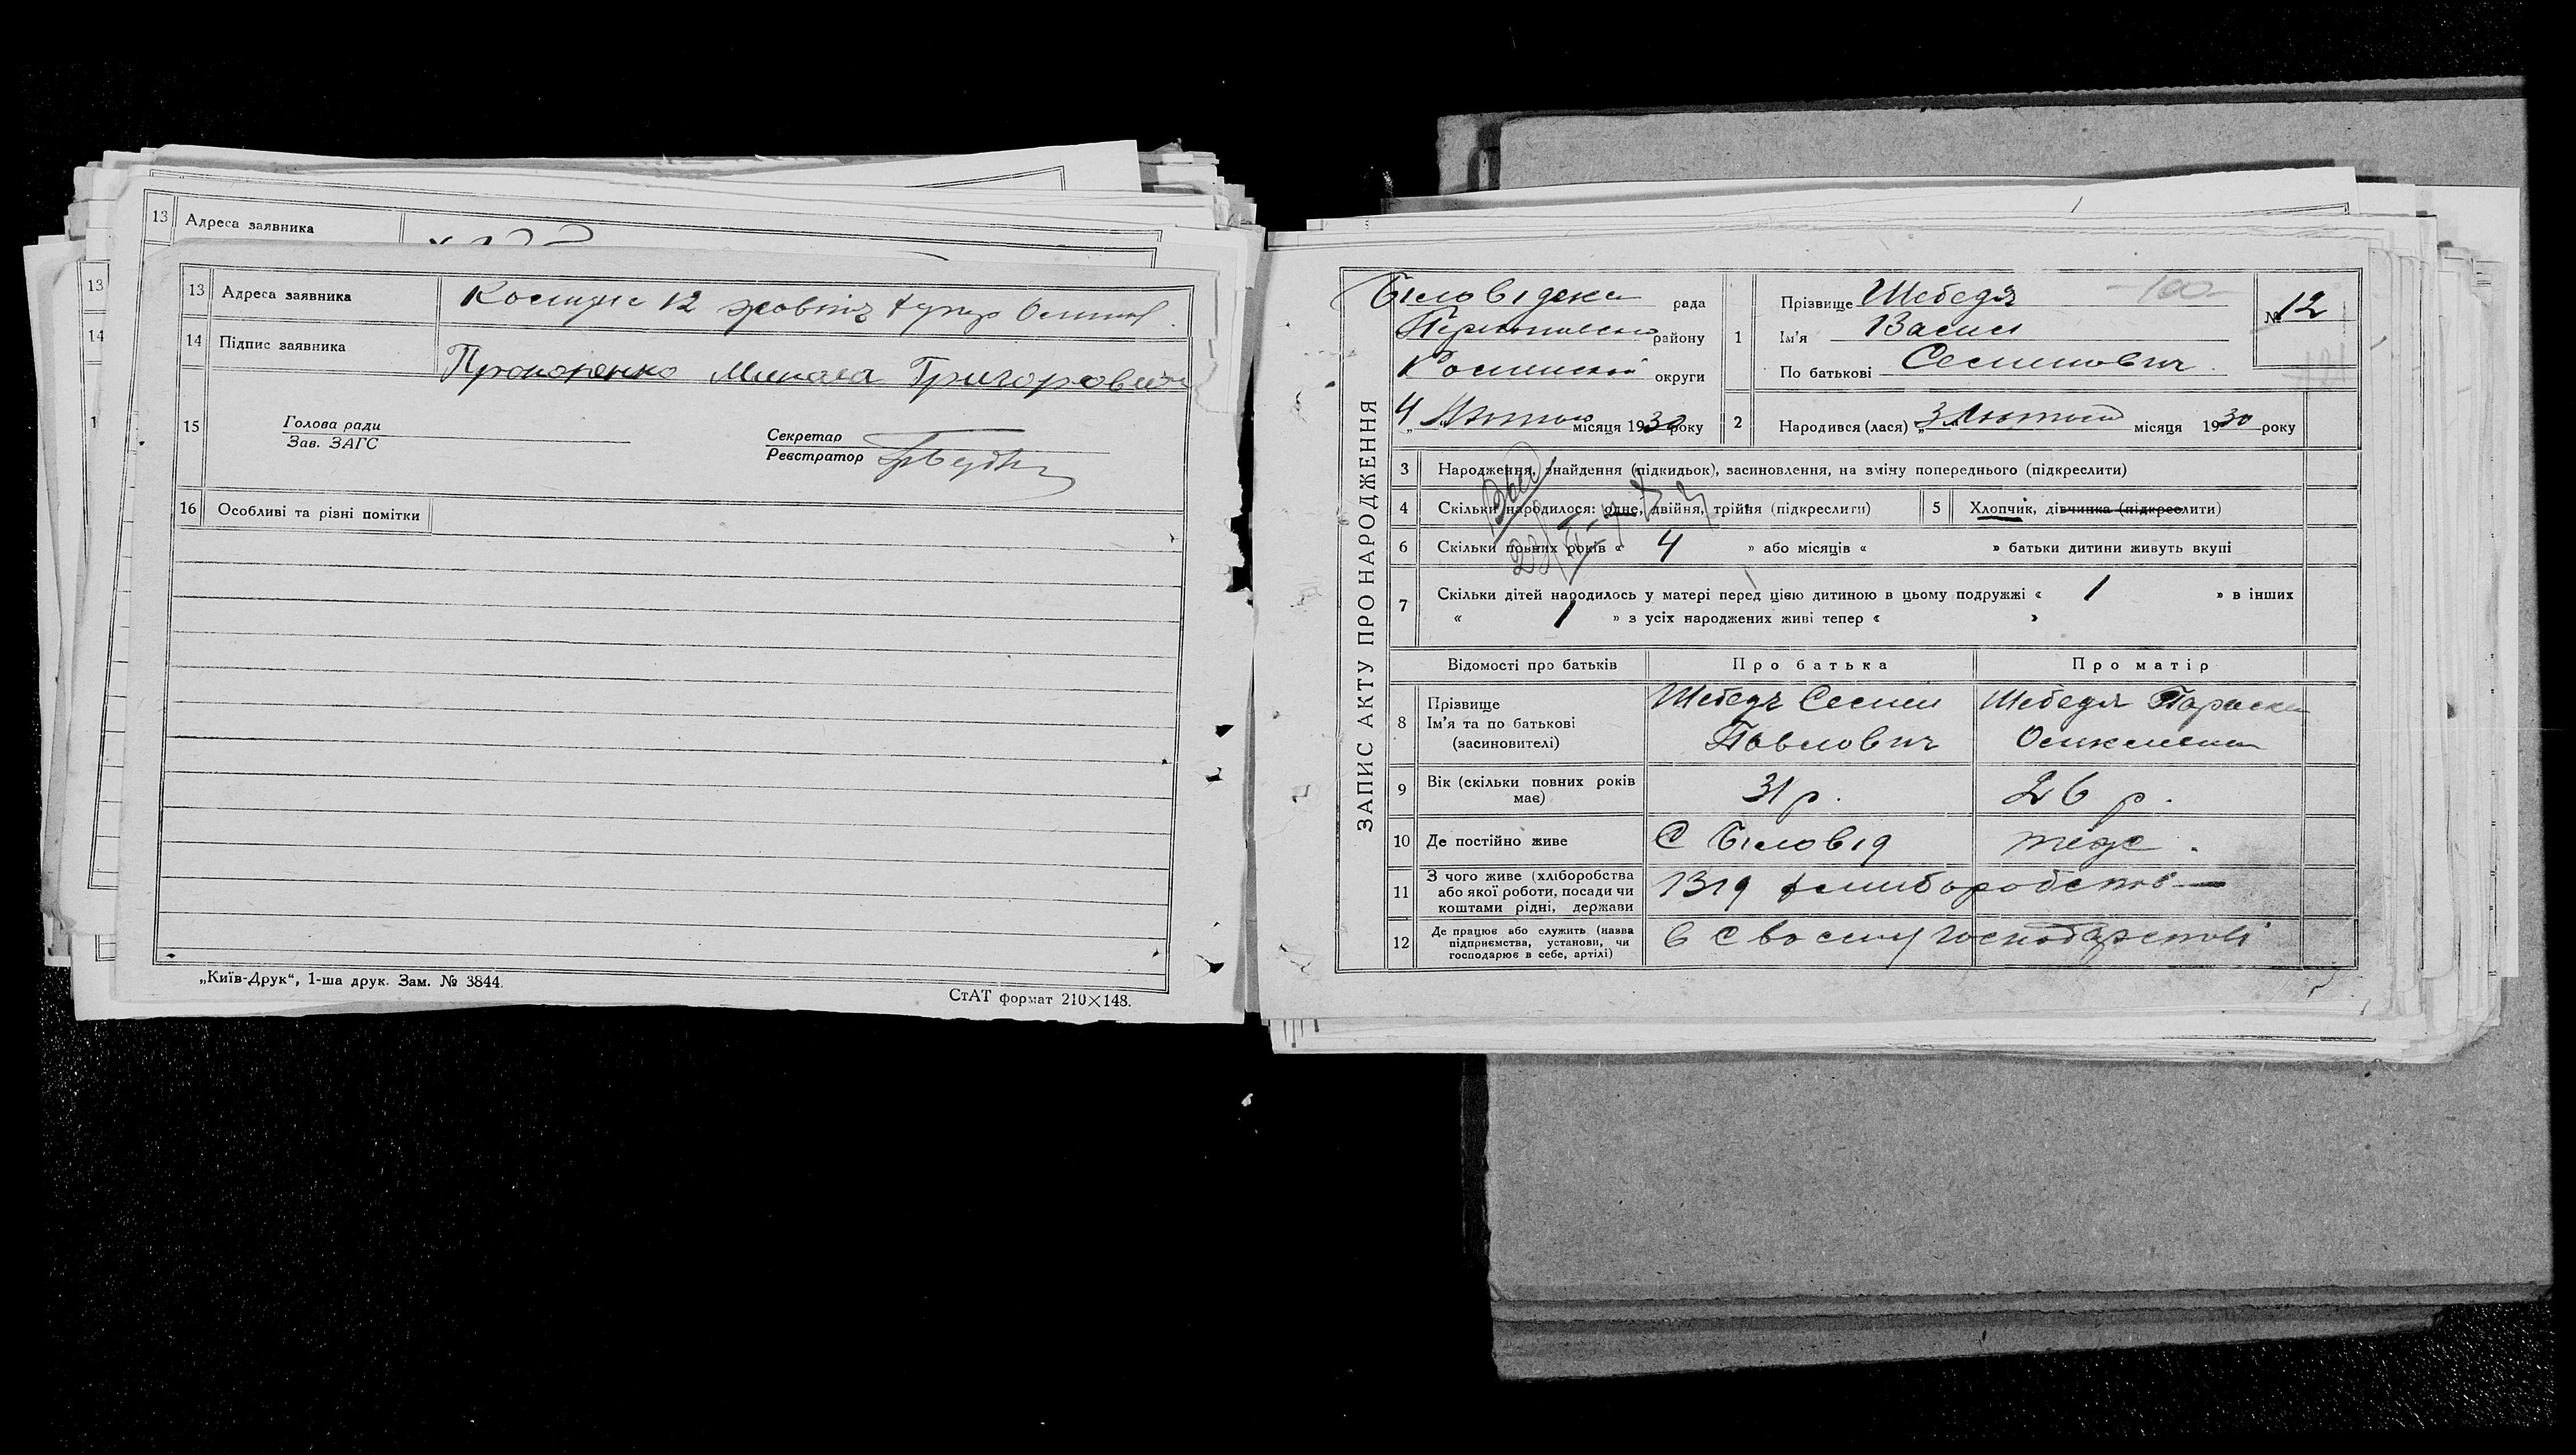 13 Адреса заявника
13 Адреса заявника
14 Підпис заявника Прокопенко Микола Григорович
15 Голова ради
Зав. ЗАГС
Секретар
Реєстратор
16 Особливі та різні помітки
„Київ-Друк“, 1-ша друк. Зам. № 3844.
СтАТ формат 210×148.
13
14
1
ЗАПИС АКТУ ПРО НАРОДЖЕННЯ
Біловідська рада
району
Роменской округи
4 Лютого місяця 1930 року
1 Прізвище Шебедя -100-
Ім'я Василь
По батькові Семенович
№ 12
2 Народився (лася) „3 Лютого місяця 1930 року
3 Народження, знайдення (підкидьок), засиновлення, на зміну попереднього (підкреслити)
4 Скільки народилося: одне, двійня, трійня (підкреслити)
5 Хлопчик, дівчинка (підкреслити)
6 Скільки повних років « 4 » або місяців « » батьки дитини живуть вкупі
7 Скільки дітей народилось у матері перед цією дитиною в цьому подружжі « 1 » в інших
« 1 » з усіх народжених живі тепер « »
Відомості про батьків Про батька Про матір
8 Прізвище
Ім'я та по батькові
(засиновителі)
Шебедя Семен
Павлович
Шебедя Параска
9 Вік (скільки повних років
має)
31 р. 26 р.
10 Де постійно живе С Біловід теж.
11 З чого живе (хліборобства
або якої роботи, посади чи
коштами рідні, держави
Від хлиборобства
12 Де працює або служить (назва
підприємства, установи, чи
господарює в себе, артілі)
в Своєму господарстві